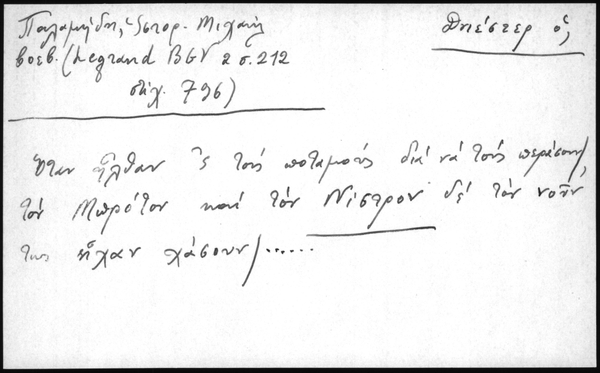 Παλαμήδη, Ἱστορ. Μιχαὴλ
βοεβ. (Legrand BGV 2 σ. 212
στίχ. 796)
Δνιέστερ ὁ,
Ὅταν ἦλθαν ς τοὺς ποταμοὺς διὰ νὰ τοὺς περάσουν/
τὸν Μπρότον καὶ τὸν Νίστρον δὲ τὸν νοῦν
των εἶχαν χάσουν/......